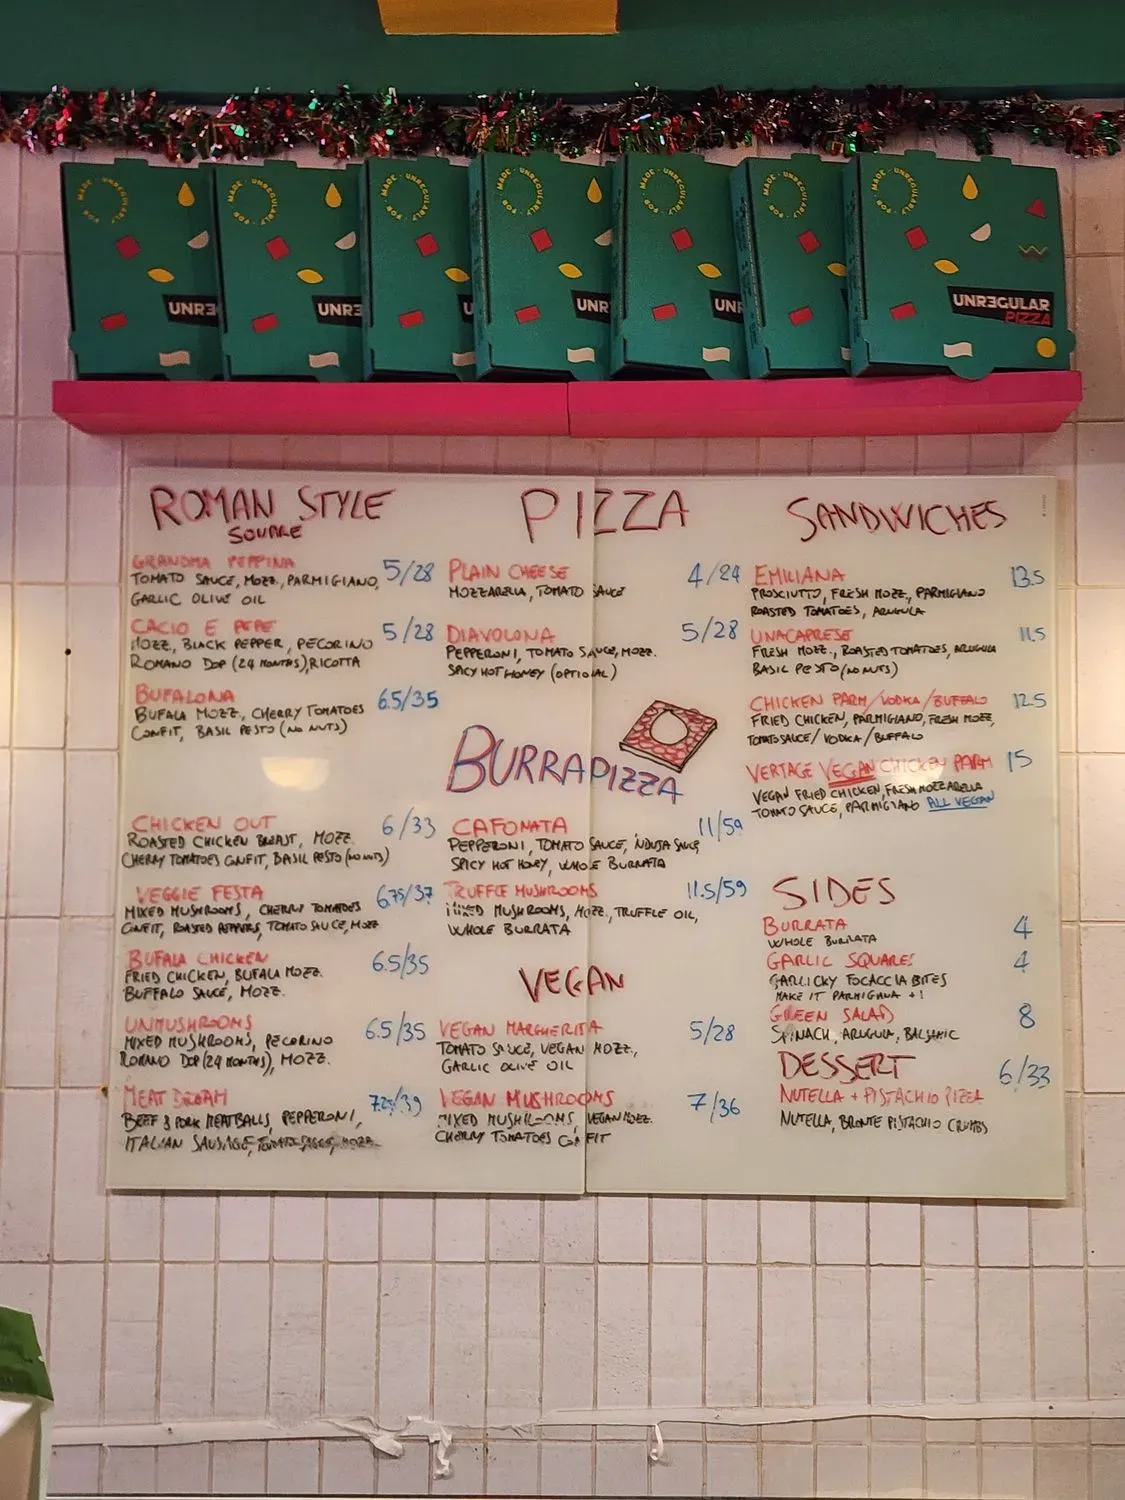 MADE · UNREGULARLY · FOR
MADE · UNREGULARLY · FOR
MADE · UNREGULARLY · FOR
MADE · UNREGULARLY · FOR
MADE · UNREGULARLY · FOR
MADE · UNREGULARLY · FOR
UNRE
UNRE
U
UNR
UN
UNREGULAR
PIZZA
ROMAN STYLE
SQUARE
GRANDMA PEPPINA 5/28
TOMATO SAUCE, MOZZ., PARMIGIANO,
GARLIC OLIVE OIL
CACIO E PEPE 5/28
MOZZ, BLACK PEPPER, PECORINO
ROMANO DOP (24 MONTHS), RICOTTA
BUFALONA 6.5/35
BUFALA MOZZ., CHERRY TOMATOES
CONFIT, BASIL PESTO (NO NUTS)
CHICKEN OUT 6/33
ROASTED CHICKEN BREAST, MOZZ.
CHERRY TOMATOES CONFIT, BASIL PESTO (NO NUTS)
VEGGIE FESTA 6.75/37
MIXED MUSHROOMS, CHERRY TOMATOES
CONFIT, ROASTED PEPPERS, TOMATO SAUCE, MOZZ
BUFALA CHICKEN 6.5/35
FRIED CHICKEN, BUFALA MOZZ.
BUFFALO SAUCE, MOZZ.
UNMUSHROOMS 6.5/35
MIXED MUSHROOMS, PECORINO
ROMANO DOP (24 MONTHS), MOZZ.
MEAT DREAM 7.25/39
BEEF & PORK MEATBALLS, PEPPERONI,
ITALIAN SAUSAGE, TOMATO SAUCE, MOZZ.
PIZZA
PLAIN CHEESE 4/24
MOZZARELLA, TOMATO SAUCE
DIAVOLONA 5/28
PEPPERONI, TOMATO SAUCE, MOZZ.
SPICY HOT HONEY (OPTIONAL)
BURRAPIZZA
CAFONATA 11/59
PEPPERONI, TOMATO SAUCE, NDUJA SAUCE,
SPICY HOT HONEY, WHOLE BURRATA
TRUFFLE MUSHROOMS 11.5/59
MIXED MUSHROOMS, MOZZ., TRUFFLE OIL,
WHOLE BURRATA
VEGAN
VEGAN MARGHERITA 5/28
TOMATO SAUCE, VEGAN MOZZ.,
GARLIC OLIVE OIL
VEGAN MUSHROOMS 7/36
MIXED MUSHROOMS, VEGAN MOZZ.
CHERRY TOMATOES CONFIT
SANDWICHES
EMILIANA 13.5
PROSCIUTTO, FRESH MOZZ., PARMIGIANO
ROASTED TOMATOES, ARUGULA
UNACAPRESE 11.5
FRESH MOZZ., ROASTED TOMATOES, ARUGULA
BASIL PESTO (NO NUTS)
CHICKEN PARM/VODKA/BUFFALO 12.5
FRIED CHICKEN, PARMIGIANO, FRESH MOZZ,
TOMATO SAUCE/VODKA/BUFFALO
VERTAGE VEGAN CHICKEN PARM 15
VEGAN FRIED CHICKEN, FRESH MOZZARELLA
TOMATO SAUCE, PARMIGIANO ALL VEGAN
SIDES
BURRATA 4
WHOLE BURRATA
GARLIC SQUARES 4
GARLICKY FOCACCIA BITES
MAKE IT PARMIGIANA +1
GREEN SALAD 8
SPINACH, ARUGULA, BALSAMIC
DESSERT 6/33
NUTELLA + PISTACHIO PIZZA
NUTELLA, BRONTE PISTACHIO CRUMBS